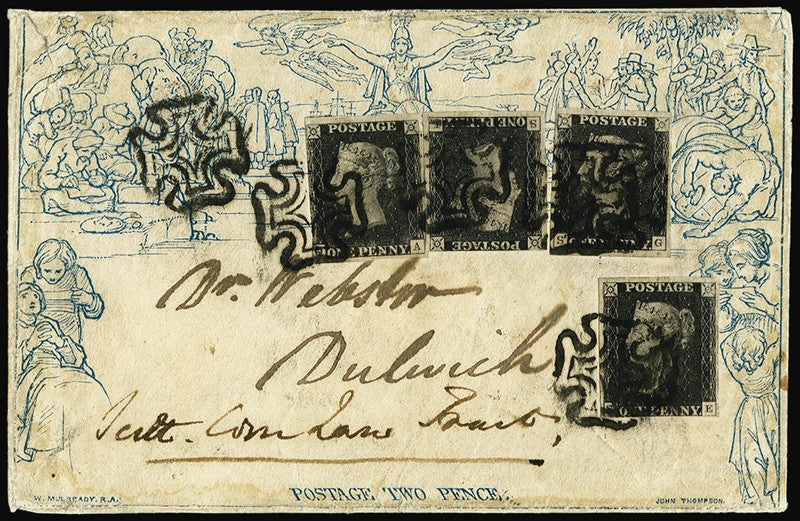 POSTAGE
ONE PENNY
A
POSTAGE
S
POSTAGE
ONE PENNY
S G
Dr. Webster
Dulwich
POSTAGE
ONE PENNY
E
Corn Law Tract,
POSTAGE TWO PENCE.
W. MULREADY. R.A.
JOHN THOMPSON.